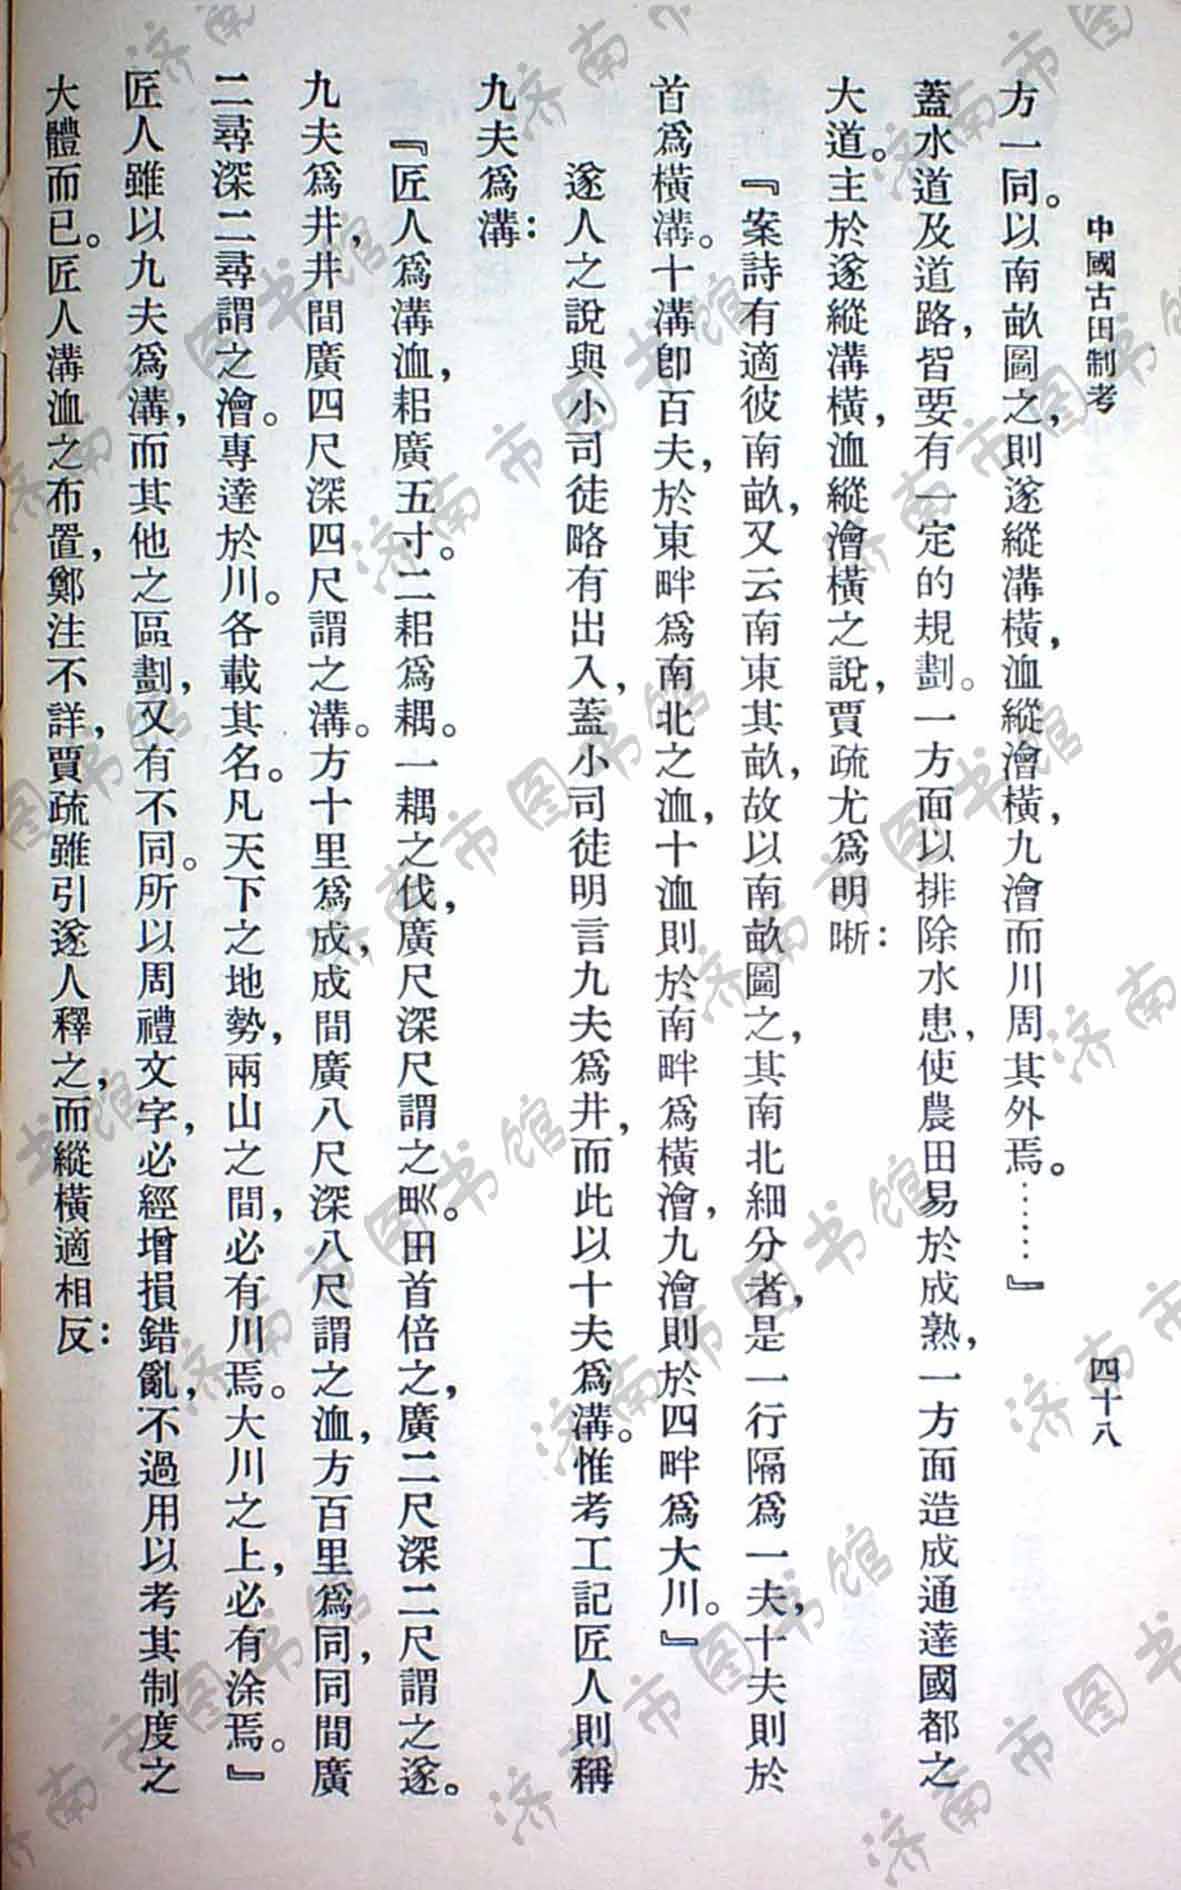 中國古田制考
四十八
方一同。以南畝圖之，則遂縱溝橫，洫縱澮橫，九澮而川周其外焉。……』
蓋水道及道路，皆要有一定的規劃。一方面以排除水患，使農田易於成熟，一方面造成通達國都之
大道。主於遂縱溝橫，洫縱澮橫之說，賈疏尤爲明晰：
『案詩有適彼南畝，又云南東其畝，故以南畝圖之，其南北細分者，是一行隔爲一夫，十夫則於
首爲橫溝。十溝卽百夫，於東畔爲南北之洫，十洫則於南畔爲橫澮，九澮則於四畔爲大川。』
遂人之說與小司徒略有出入，蓋小司徒明言九夫爲井，而此以十夫爲溝。惟考工記匠人則稱
九夫爲溝：
『匠人爲溝洫，耜廣五寸。二耜爲耦。一耦之伐，廣尺深尺謂之𤰕。田首倍之，廣二尺深二尺謂之遂。
九夫爲井，井間廣四尺深四尺謂之溝。方十里爲成，成間廣八尺深八尺謂之洫，方百里爲同，同間廣
二尋深二尋謂之澮。專達於川。各載其名。凡天下之地勢，兩山之間，必有川焉。大川之上，必有涂焉。』
匠人雖以九夫爲溝，而其他之區劃，又有不同。所以周禮文字，必經增損錯亂，不過用以考其制度之
大體而已。匠人溝洫之布置，鄭注不詳，賈疏雖引遂人釋之，而縱橫適相反：
济南市图书馆